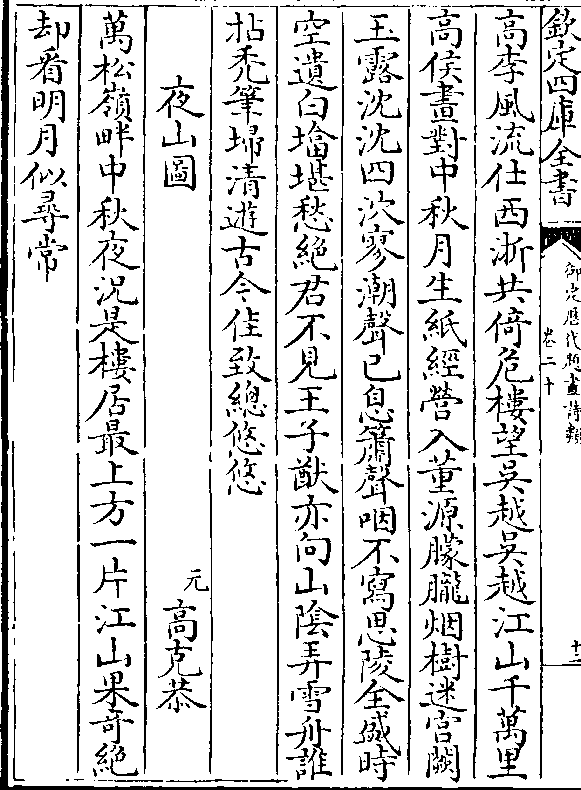 欽定四庫全書
御定歷代題畫詩類
卷二十
十三
高李風流仕西浙共倚危樓望吳越吳越江山千萬里
高侯畫對中秋月生紙經營入董源朦朧烟樹迷宫闕
玉露沈沈四泬寥潮聲已息簫聲咽不寫思陵全盛時
空遺白墖堪愁絶君不見王子猷亦向山陰弄雪舟誰
拈秃筆埽清遊古今佳致總悠悠
夜山圖
元 高克恭
萬松嶺畔中秋夜況是樓居最上方一片江山果奇絶
却看明月似尋常